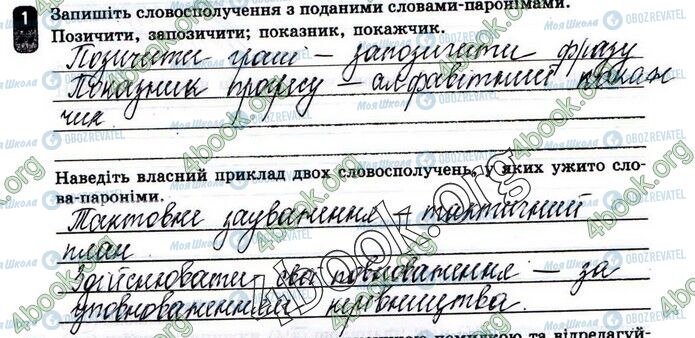 1 Запишіть словосполучення з поданими словами-паронімами.
Позичити, запозичити; показник, покажчик.
Позичити гроші – запозичити фразу
Показник прогресу – алфавітний покаж
чик.
Наведіть власний приклад двох словосполучень, у яких ужито сло-
ва-пароніми.
Тактовне зауваження – тактичний
план.
Здійснювати свої повноваження – за
уповноваженням керівництва.
помилкою та відредагуй-